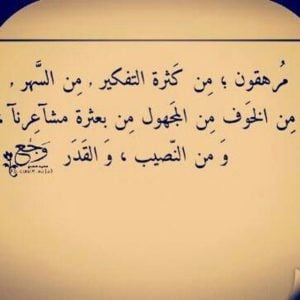 مُرهقون ؛ مِن كَثرة التفكير , مِن السَّهر ,
مِن الخَوف مِن المَجهول مِن بعثرة مشآعرنآ ،
وَ من النّصيب ، وَ القَدَر
وَجَع